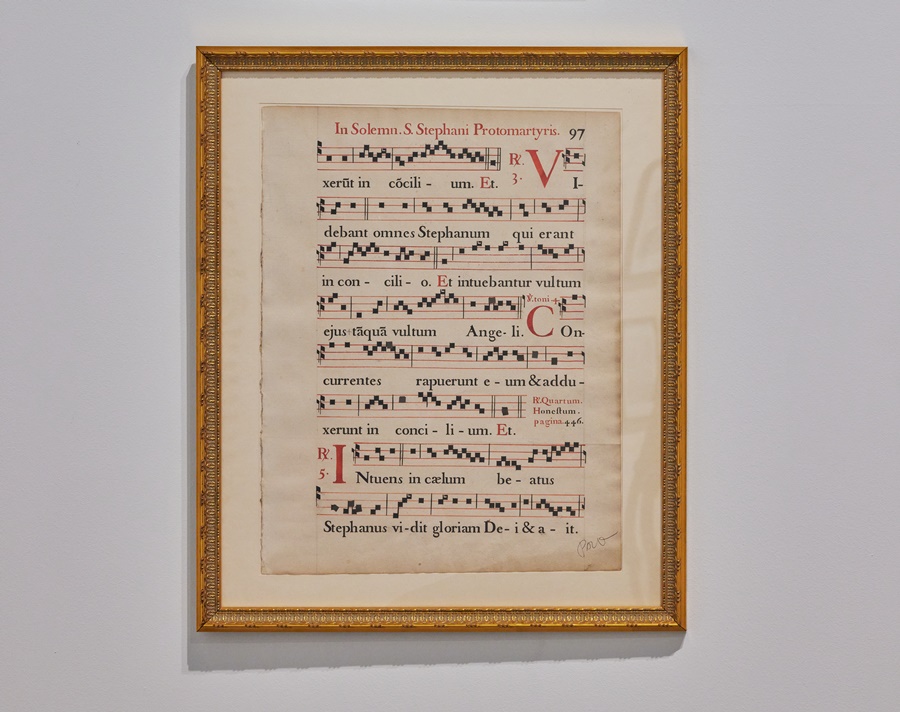 In Solemn. S. Stephani Protomartyris. 97
xerũt in cõcili - um. Et. ℟. 3. VI-
debant omnes Stephanum qui erant
in con - cili - o. Et intuebantur vultum
ejus tãquã vultum Ange - li. ℣. toni 4. COn-
currentes rapuerunt e - um & addu -
xerunt in conci - li - um. Et. ℟. Quartum.
Honeſtum.
pagina. 446.
℟. 5. INtuens in cælum be - atus
Stephanus vi - dit gloriam De - i & a - it.